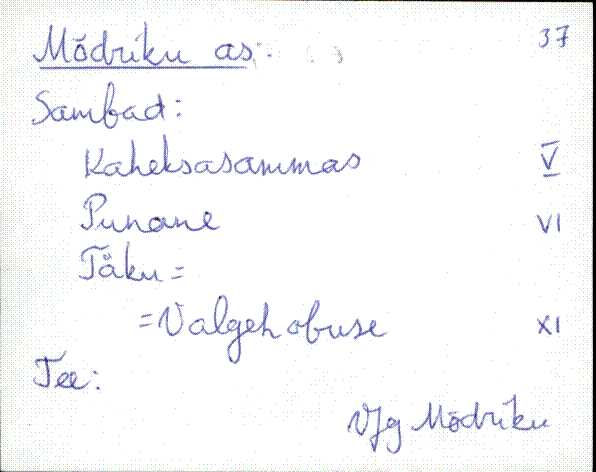 Mõdriku as. 37
Sambad:
Kaheksasammas V
Punane VI
Täku =
= Valgehobuse XI
Tee:
VJg Mõdriku